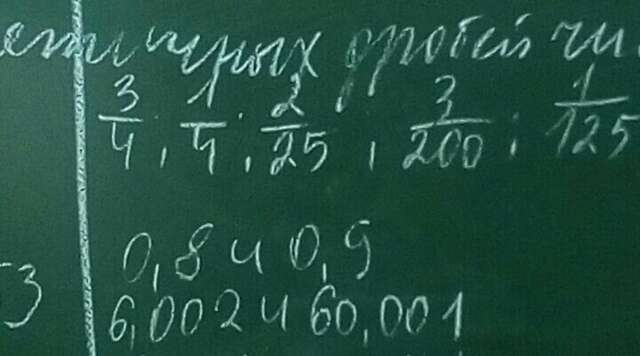 етичных дробей чи
3/4; 1/4; 2/25; 3/200; 1/125
0,8 и 0,9
53 6,002 и 60,001